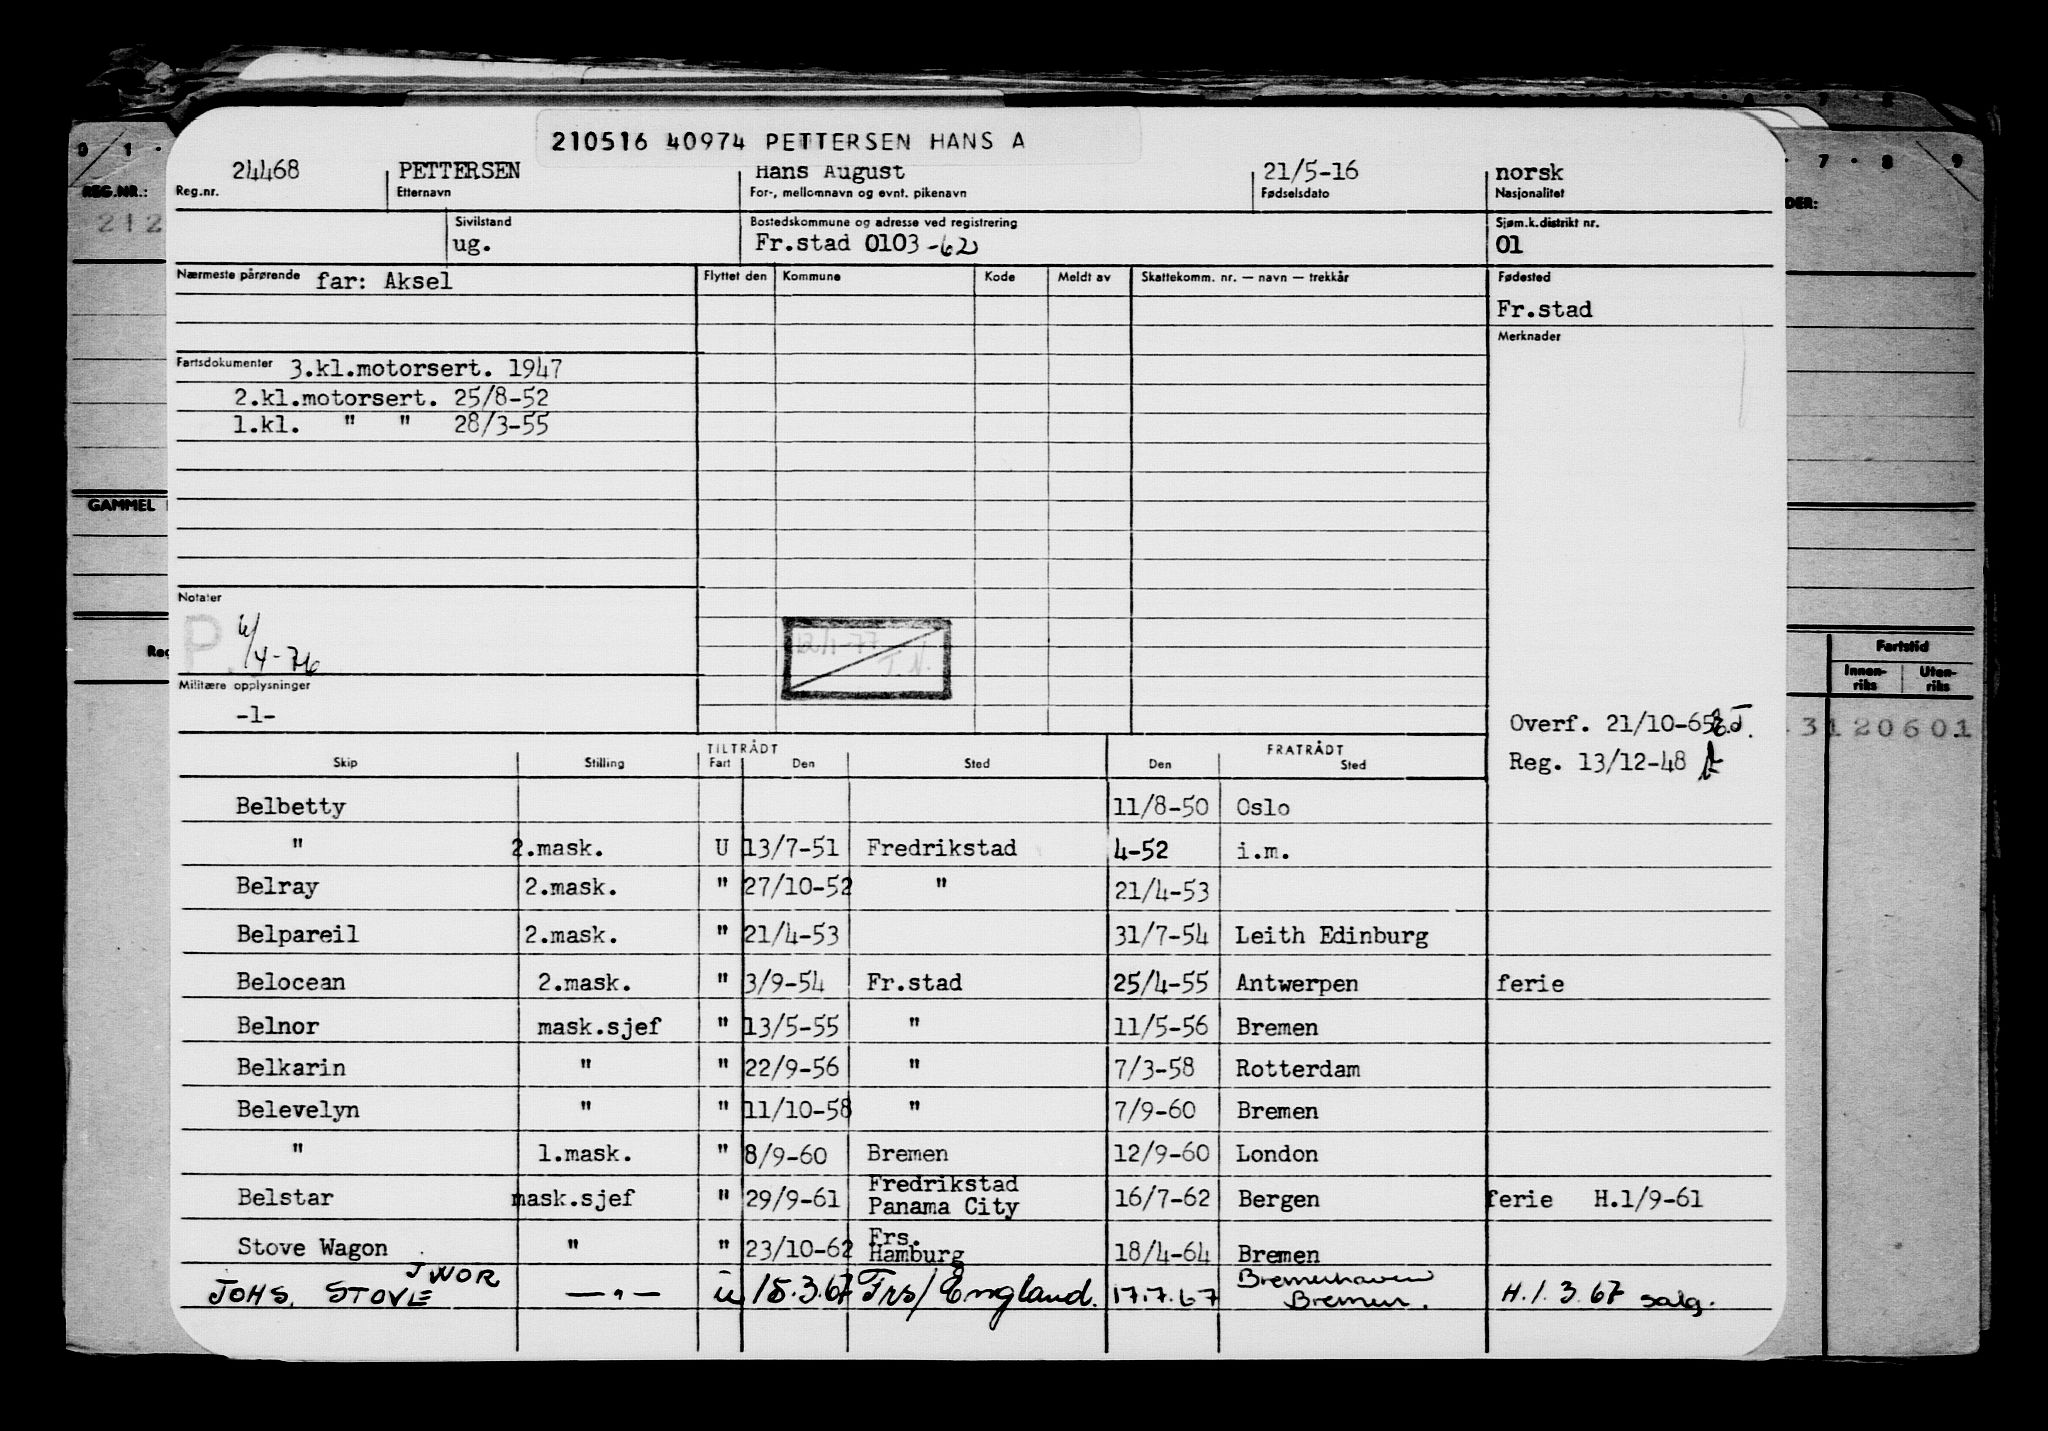 210516 40974 PETTERSEN HANS A
24468 PETTERSEN Hans August 21/5-16 norsk
Reg.nr. Etternavn For-, mellomnavn og evnt. pikenavn Fødselsdato Nasjonalitet
Sivilstand Bostedskommune og adresse ved registrering Sjøm.k.distrikt nr.
ug. Fr.stad 0103 -62 01
Nærmeste pårørende far: Aksel Flyttet den Kommune Kode Meldt av Skattekomm. nr. — navn — trekkår Fødested
Fr.stad
Merknader
Fartsdokumenter 3.kl.motorsert. 1947
2.kl.motorsert. 25/8-52
1.kl. " " 28/3-55
Notater
P.
/4-76
Militære opplysninger
-1-
Overf. 21/10-65
Reg. 13/12-48
TILTRÅDT FRATRÅDT
Skip Stilling Fart Den Sted Den Sted
Belbetty 11/8-50 Oslo
" 2.mask. U 13/7-51 Fredrikstad 4-52 i.m.
Belray 2.mask. " 27/10-52 " 21/4-53
Belpareil 2.mask. " 21/4-53 31/7-54 Leith Edinburg
Belocean 2.mask. " 3/9-54 Fr.stad 25/4-55 Antwerpen ferie
Belnor mask.sjef " 13/5-55 " 11/5-56 Bremen
Belkarin " " 22/9-56 " 7/3-58 Rotterdam
Belevelyn " " 11/10-58 " 7/9-60 Bremen
" 1.mask. " 8/9-60 Bremen 12/9-60 London
Belstar mask.sjef " 29/9-61 Fredrikstad Panama City 16/7-62 Bergen ferie H.1/9-61
Stove Wagon " " 23/10-62 Frs. Hamburg 18/4-64 Bremen
JOHS. STOVE — " — u 15.3.67 Frs/England. 17.7.67 Bremerhaven Bremen. H.1.3.67 salg.
0 1 .
REG.NR.:
212
GAMMEL
Reg
7 . 8 . 9
DER:
Fartstid
Innen-riks Uten-riks
3120601